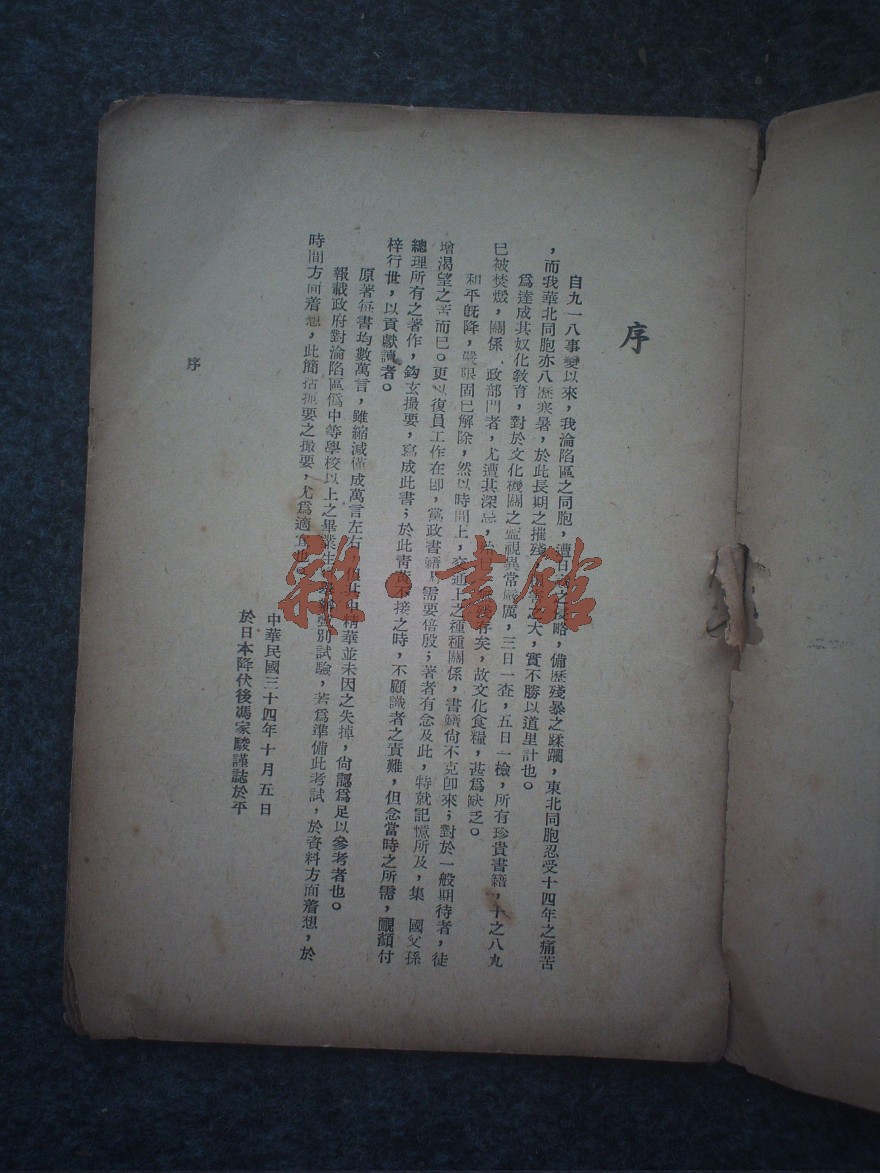 序
自九一八事變以來,我淪陷區之同胞,遭日之侵略,備歷殘暴之蹂躪,東北同胞忍受十四年之痛苦
,而我華北同胞亦八歷寒暑,於此長期之摧殘之大,實不勝以道里計也。
爲達成其奴化敎育,對於文化機關之監視異常嚴厲,三日一查,五日一檢,所有珍貴書籍,十之八九
已被焚燬,關係政部門者,尤遭其深忌,存矣,故文化食糧,甚爲缺乏。
和平旣降,嚴限固已解除,然以時間上,交通上之種種關係,書籍尙不克卽來;對於一般期待者,徒
增渴望之苦而已。更以復員工作在卽,黨政書籍需要倍殷;著者有念及此,特就記憶所及,集 國父孫
總理所有之著作,鈎玄撮要,寫成此書;於此靑黃不接之時,不顧識者之責難,但念當時之所需,靦顏付
梓行世,以貢獻讀者。
原著每書均數萬言,雖縮減僅成萬言左右,但其中精華並未因之失掉,尙認爲足以參考者也。
報載政府對淪陷區僞中等學校以上之畢業生舉辦甄別試驗,若爲準備此考試,於資料方面着想,於
時間方面着想,此簡括扼要之撮要,尤爲適宜也。
中華民國三十四年十月五日
於日本降伏後馮家駿謹誌於平
序
雜·書館